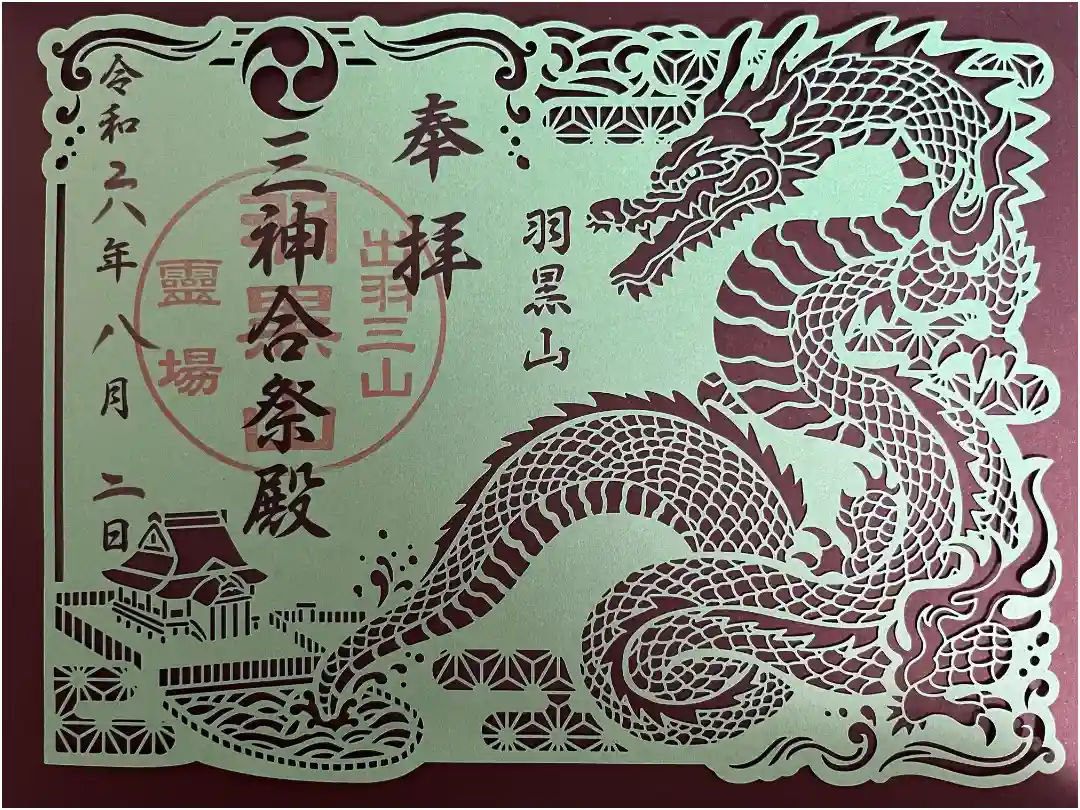 奉拝
羽黒山
三神合祭殿
出羽三山
羽黒山
靈場
令和六年八月二日